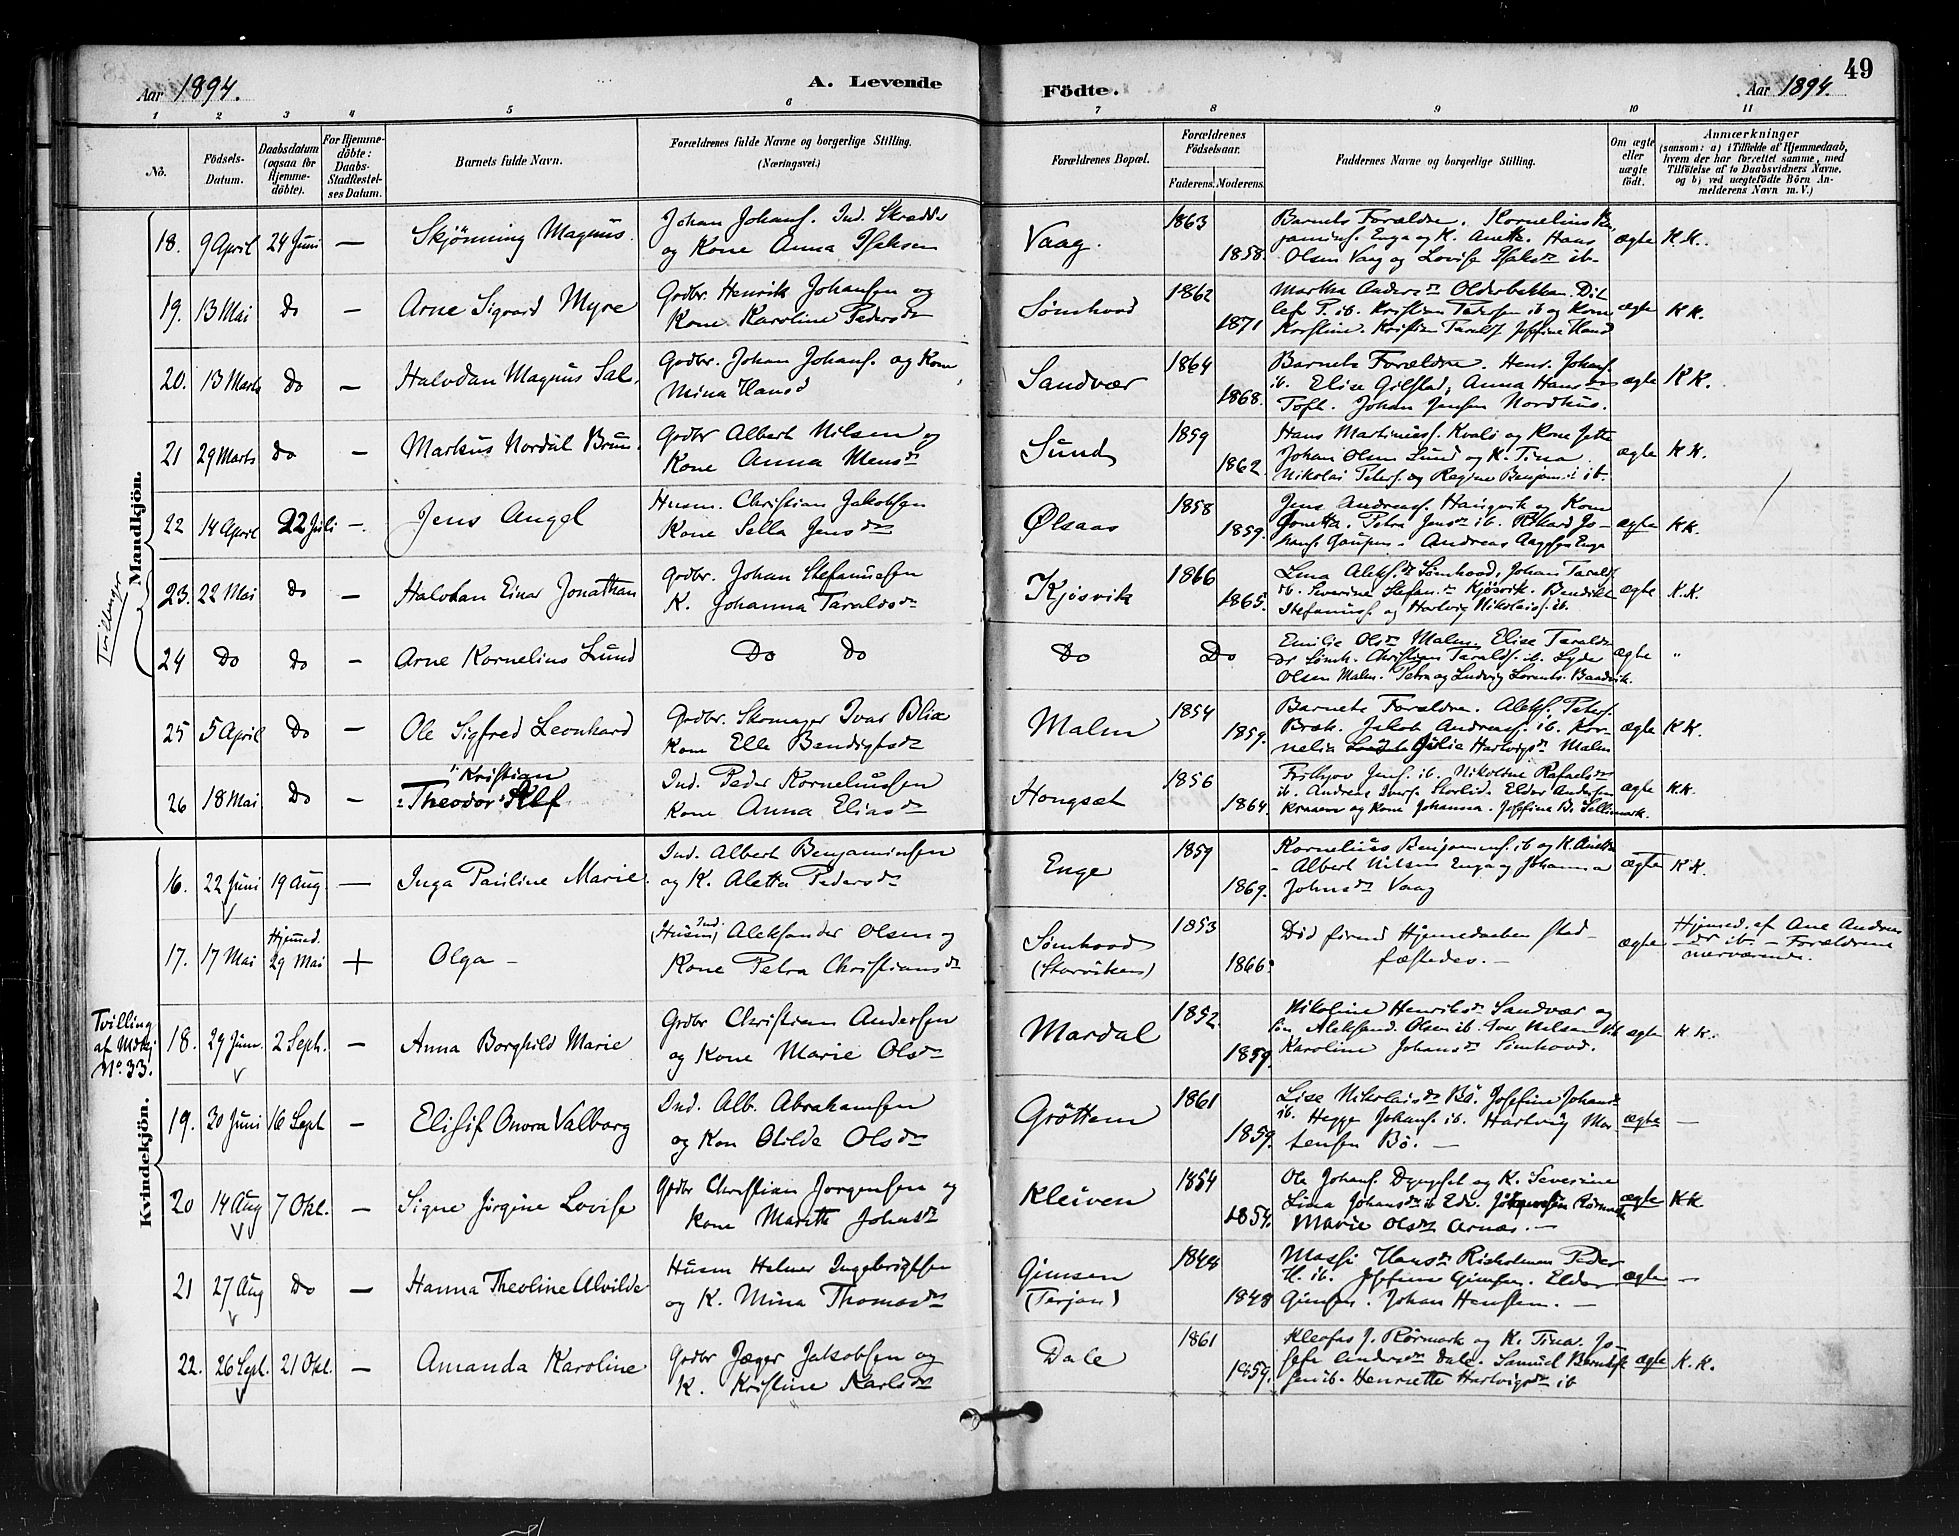 Aar 1894.
A. Levende
Födte.
Aar 1894.
49
1 2 3 4 5 6 7 8 9 10 11
No.
Födsels-
Datum.
Daabsdatum
(ogsaa för
Hjemme-
döbte).
For Hjemme-
döbte:
Daabs-
Stadfæstel-
ses Datum.
Barnets fulde Navn.
Forældrenes fulde Navne og borgerlige Stilling.
(Næringsvei.)
Forældrenes Bopæl.
Forældrenes
Födselsaar.
Faderens. Moderens.
Faddernes Navne og borgerlige Stilling.
Om ægte
eller
uægte
födt.
Anmærkninger
(saasom: a) i Tilfælde af Hjemmedaab,
hvem der har forrettet samme, med
Tilföielse af to Daabsvidners Navne,
og b) ved uægtefödte Börn An-
melderens Navn m. V.)
Mandkjön.
18. 9 April 24 Juni — Skjönning Magnus.
Johan Johans. Ind. Skrædder
og Kone Anna Isaksen
Vaag. 1863 1858.
Barnets Forældre. Kornelius Ben-
jamins. Enga og K. Anette. Hans
Olsen Vaag og Lovise Isaksdr ib.
ægte K.K.
19. 13 Mai Do — Arne Sigvard Myre
Gdbr. Henrik Johansen og
Kone Karoline Pedersdr
Sömhovd 1862 1871
Martha Andersdr Olderbakken. Dit-
lef P. ib. Kristian Pedersen ib og Kone
ægte K K.
20. 13 Marts Do — Halvdan Magnus Sal.
Gdbr. Johan Johans. og Kone
Mina Hansd
Sandvær 1864 1868.
Barnets Forældre. Henr. Johans.
ib. Elise Gilstad, Anna Hansdr
Toft. Johan Jensen Nordhus.
ægte K K.
21 29 Marts Do — Markus Nordal Brun.
Gdbr Albert Nilsen og
Kone Anna Mensdr
Sund 1859 1862.
Hans Martinuss. Kvalö og Kone Jette
Johan Olsen Sund og K. Tina
Nikolai Peters. og Regine Benjam. ib.
ægte K K.
22 14 April 22 Juli — Jens Angel
Husm. Christian Jakobsen
Kone Sella Jensdr
Ølsaas 1858 1859.
Jens Andreas. Hangvik og Kone
Jonetta. Petra Jensdr ib. Rikard Jo-
ægte KK.
Tvillinger
23. 22 Mai Do — Halvdan Einar Jonathan
Gdbr. Johan Stefanussen
K. Johanna Taraldsdr
Kjösvik 1866 1865.
Lina Aleks.dr Sömhovd, Johan Taralds.
ib. Severine Stefan.dr Kjösvik. Bendikt
Stefanuss. og Hartvig Nikolais. ib.
ægte K.K.
24 Do Do — Arne Kornelius Lund
Do Do
Do Do
Emilie Olsdr Malm, Elise Taralds-
dr Sömh. Christian Taralds. ib. Lyder
Olsen Malm. Petra og Ludvig Lorents. Baadvik.
ægte "
25 5 April Do — Ole Sigfred Leonhard
Gdbr. Skomager Ivar Blix
Kone Elle Bendigtsdr
Malm 1854 1859.
Barnets Forældre. Aleks. Peters.
Bræk. Jakob Andreas. ib. Kor-
nelia Julie Hartvigsdr Malm
ægte K K.
26 18 Mai Do — Kristian
Theodor Alf
Ind. Peder Korneliussen
Kone Anna Eliasdr
Hongsæt 1856 1864.
Frithjov Jens. ib. Nikoline Rafaelsdr
ib. Andreas Ivers. Storlid. Eldor Andersen
og Kone Johanna. Josefine B. Sellimark.
ægte KK.
Kvindekjön.
16. 22 Juni 19 Aug. — Inga Pauline Marie.
Ind. Albert Benjaminsen
og K. Aletta Pedersdr
Enge 1859 1869.
Kornelius Benjamins. ib og K. Anette
- Albert Nilsen Enga og Johanna
Johnsdr Vaag
ægte K K.
17. 17 Mai Hjemed.
29 Mai + Olga —
(Husm) Ind. Aleksander Olsen og
Kone Petra Christiansdr
Sömhovd
(Storviken) 1853 1866.
Död förend Hjemmedaaben stad-
fæstedes. —
ægte
Hjemed. af Ane Anders-
dr ib. — Forældrene
nærværende.
Tvilling
af Mdkj.
No. 33.
18. 29 Juni. 2 Sept. — Anna Borghild Marie
Grdbr Christian Andersen
og Kone Marie Olsdr
Mardal 1852. 1859.
Nikoline Henriksdr Sandvær og
Aleksand. Olsen ib. Iver Nilsen
Karoline Johansdr Sömhovd.
ægte K K.
19. 30 Juni 16 Sept — Elisif Onora Valborg
Ind. Alb. Abrahamsen
og Kon Olilde Olsdr
Gröttem 1861 1859.
Lise Nikolaisdr Bö. Josefine Johansd
ib. Hegge Johans. ib. Hartvig Mor-
tensen Bö. —
ægte —
20 14 Aug 7 Okt. — Signe Jörgine Lovise
Gdbr Christian Jorgensen og
Kone Marith Johnsdr
Kleiven 1854 1854.
Ole Johans. Dypsset og K. Severine
Lina Johansdr ib Edv. Rörmark
Marie Olsdr Arnæs. —
ægte KK
21 27 Aug Do — Hanna Theoline Alvilde
Husm Helmer Ingebrigtsen
og K. Mina Thomasdr
Gimsen
(Terjan) 1848 1848
Massi Hansdr Risholmen Peder
H. ib. Josefine Gimsen. Eldor
Gimsen. Johan Henstem. —
ægte —
22. 26 Sept. 21 Okt. — Amanda Karoline
Gdbr Jæger Jakobsen og
K. Kristine Karlsdr
Dale 1861 1859.
Kleofas J. Rörmark og K. Tina. Jo-
sefa Andersdr Dale. Samuel Berndt-
sen ib. Henriette Hartvigsdr ib
ægte K.K.